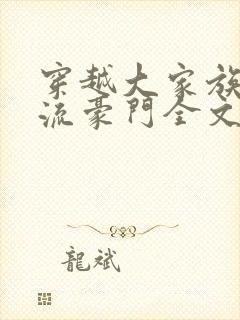 穿越大家族
流豪門全文
龍斌